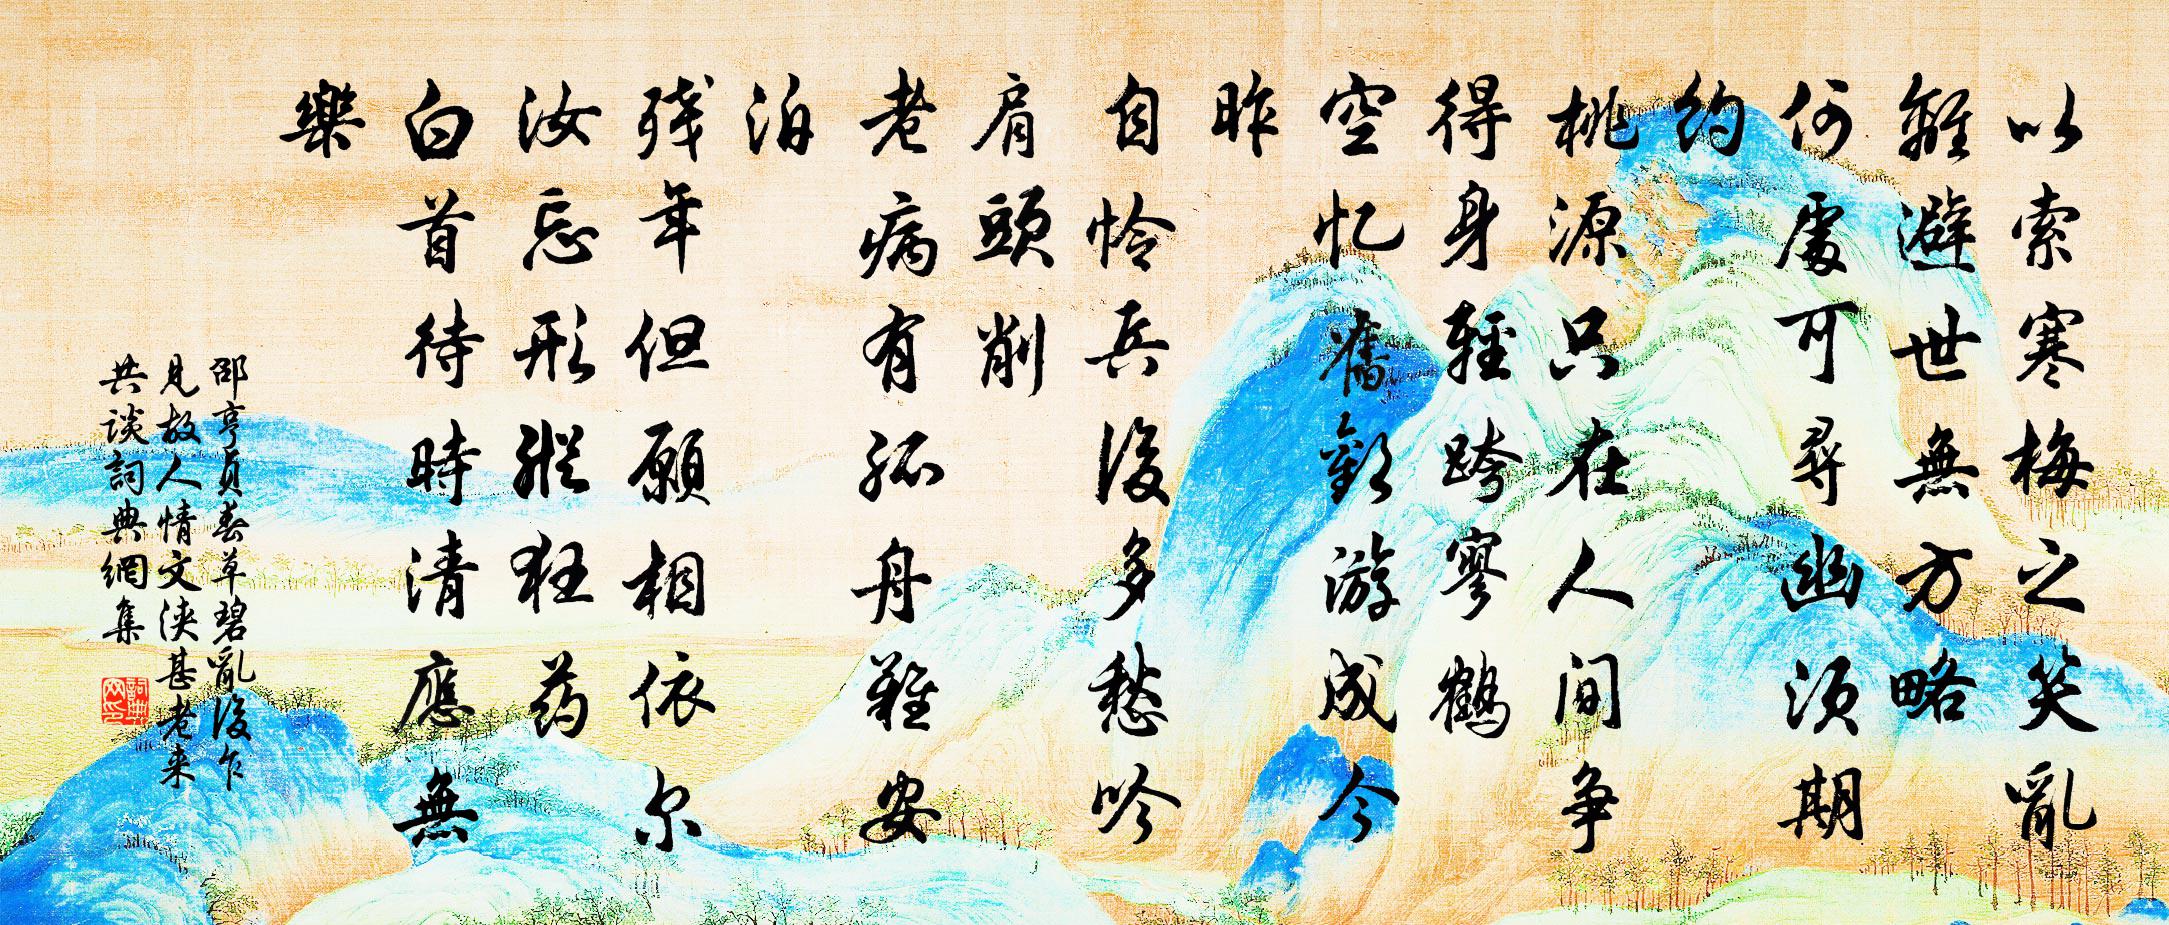 以索寒梅之笑亂
離避世無方略
何處可尋幽須期
約
桃源只在人间争
得身輕跨寥鶴
空忆舊歡游成今
昨
自怜兵後多愁吟
肩頭削
老病有孤舟難安
泊
残年但願相依尔
汝忘形縱狂药
白首待時清應無
樂
邵亨貞春草碧亂後乍
見故人情文浹甚老来
共談詞典網集
詞典网印